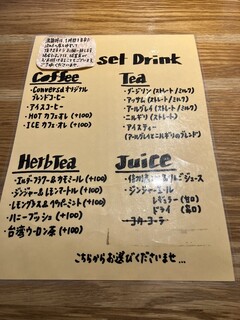 set Drink
Coffee
・Conversaオリジナル
ブレンドコーヒー
・アイスコーヒー
・HOT カフェオレ (+100)
・ICE カフェオレ (+100)
Tea
・ダージリン (ストレート/ミルク)
・アッサム (ストレート/ミルク)
・アールグレイ (ストレート/ミルク)
・ニルギリ (ストレート)
・アイスティー
(アールグレイとニルギリのブレンド)
HerbTea
・エルダーフラワー&カモミール (+100)
・ジンジャー&レモンマートル (+100)
・レモングラス& (+100)
・ハニーブッシュ (+100)
・台湾ウーロン茶 (+100)
Juice
ジュース
・ジンジャーエール
レギュラー (甘口)
ドライ (辛口)
こちらからお選びくださいませ…